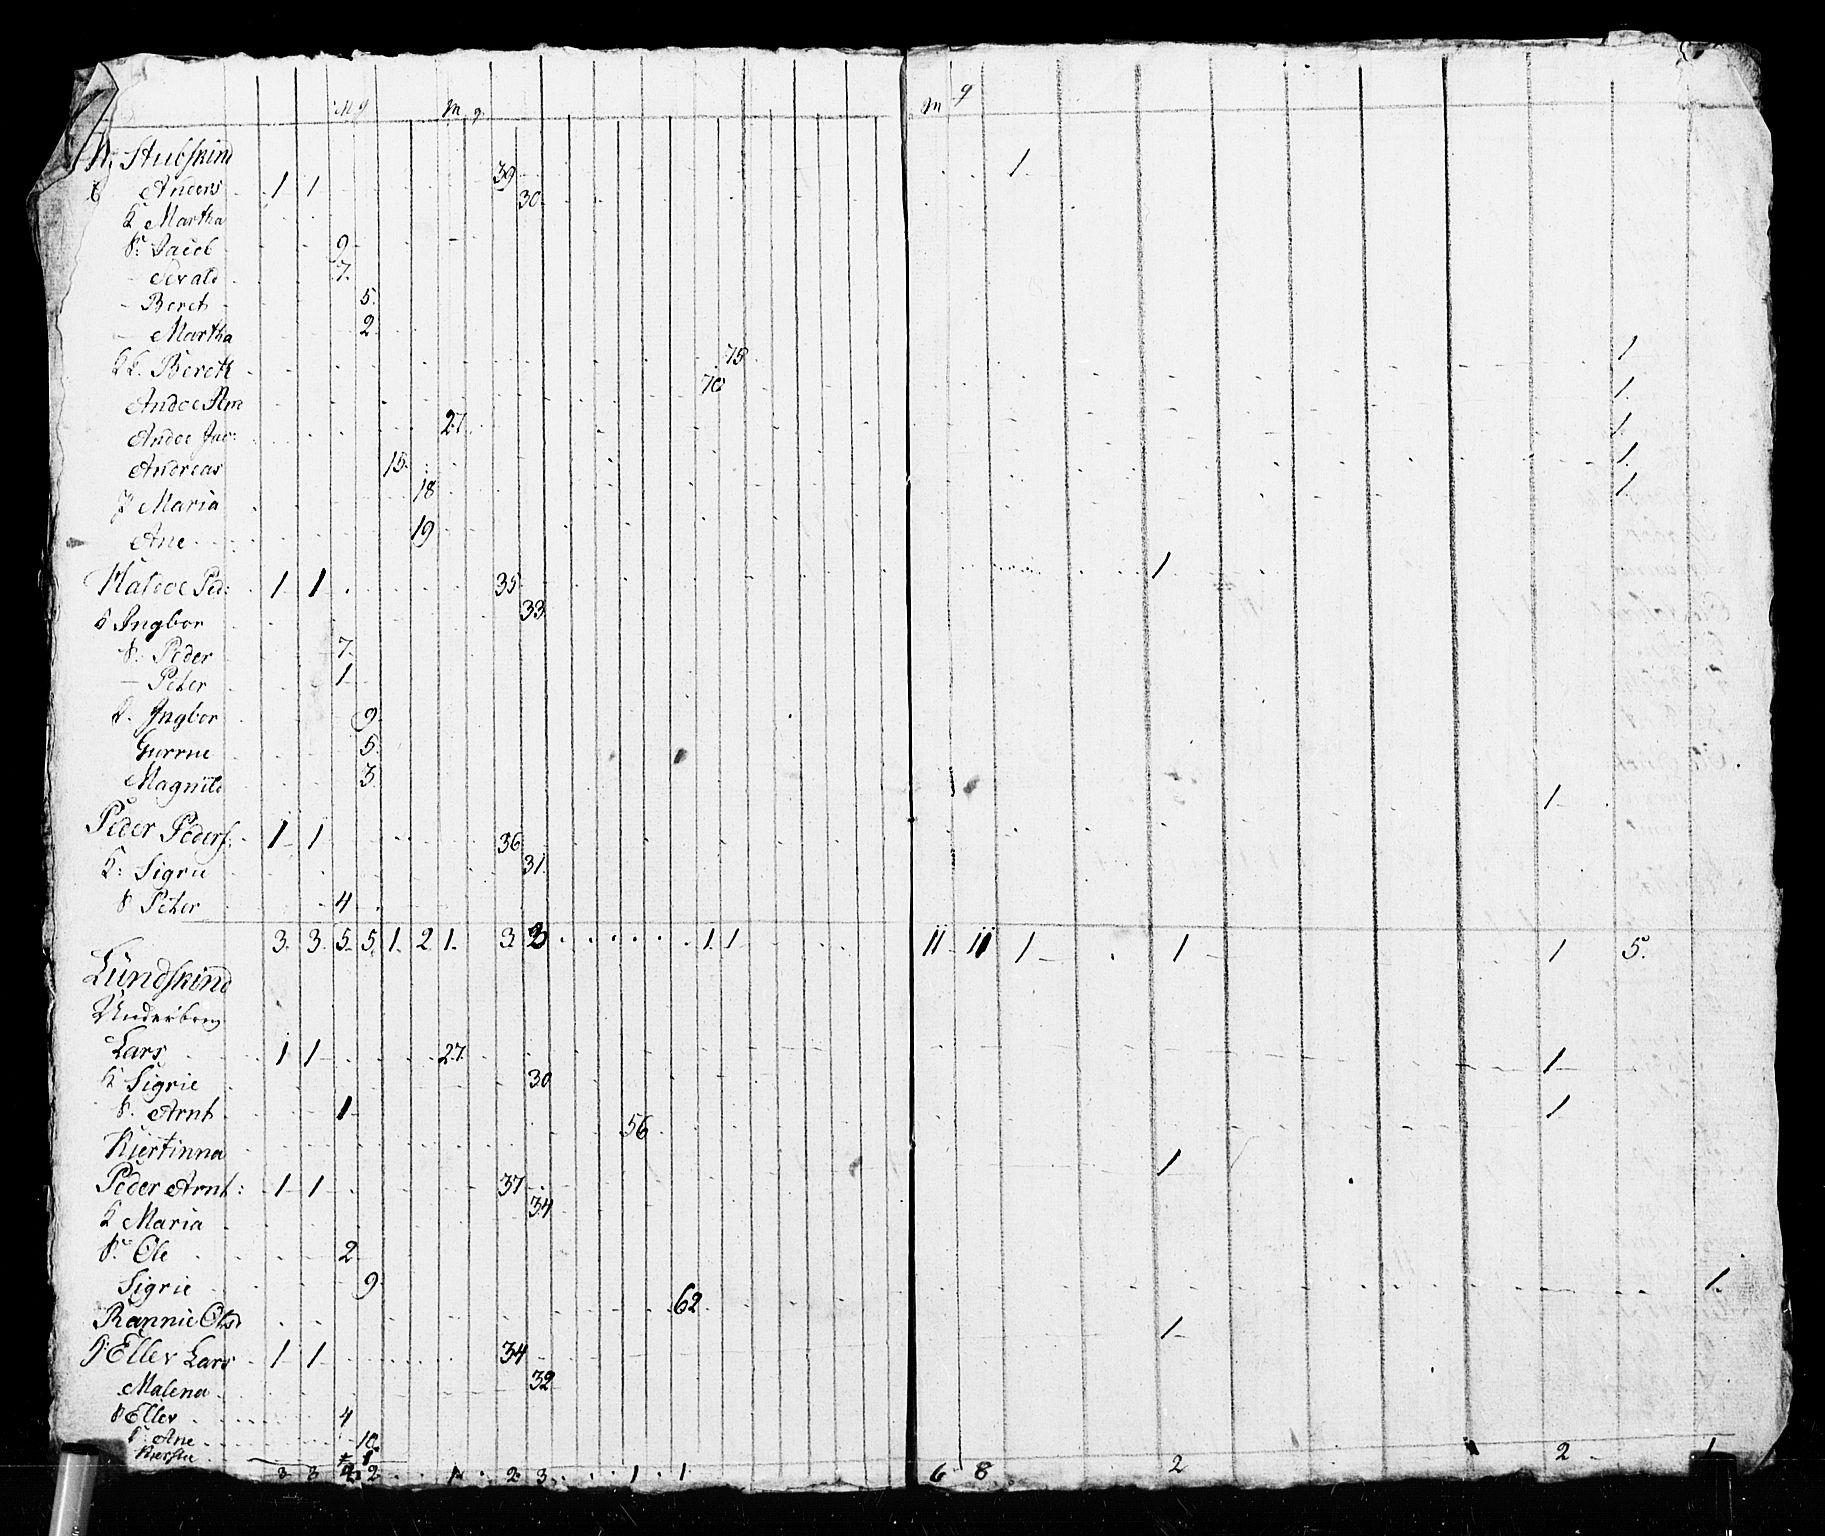 M q M q m q
N: Stubskind 1
Anders 1 1 39
K Martha 30
S: Jacob 9
- Sivald 7
- Beret 5
- Martha 2
KK. Bereth 75 1
Andoe Am 70 1
Andoe Jac: 27 1
Andreas 15 1
P Maria 18 1
Ane 19
Hatvoe Ped: 1 1 35 1
K Ingbor 33
S: Peder 7
- Peter 1
D. Ingbor 9
Gurrue 5
Magnild 3
Peder Peders: 1 1 36 1
K: Sigru 31
S Peter 4
3. 3. 5. 5. 1. 2 1. 3. 3 1 1 11 11 1 1 1 5.
Lundskind
Underbrug
Lars 1 1 27 1
K Sigrie 30
S. Arnt 1 1
Kiertinna 56
Peder Arnt: 1 1 37 1
K Maria 34
S. Ole 2
Sigrie 9
Rannie Olsd 62 1
Eller Lars 1 1 34 1
Malena 32
S Eller 4
D: Ane 10
Kierstie 8
3 3 2 1 2 3 1 1 6 8 2 2 1